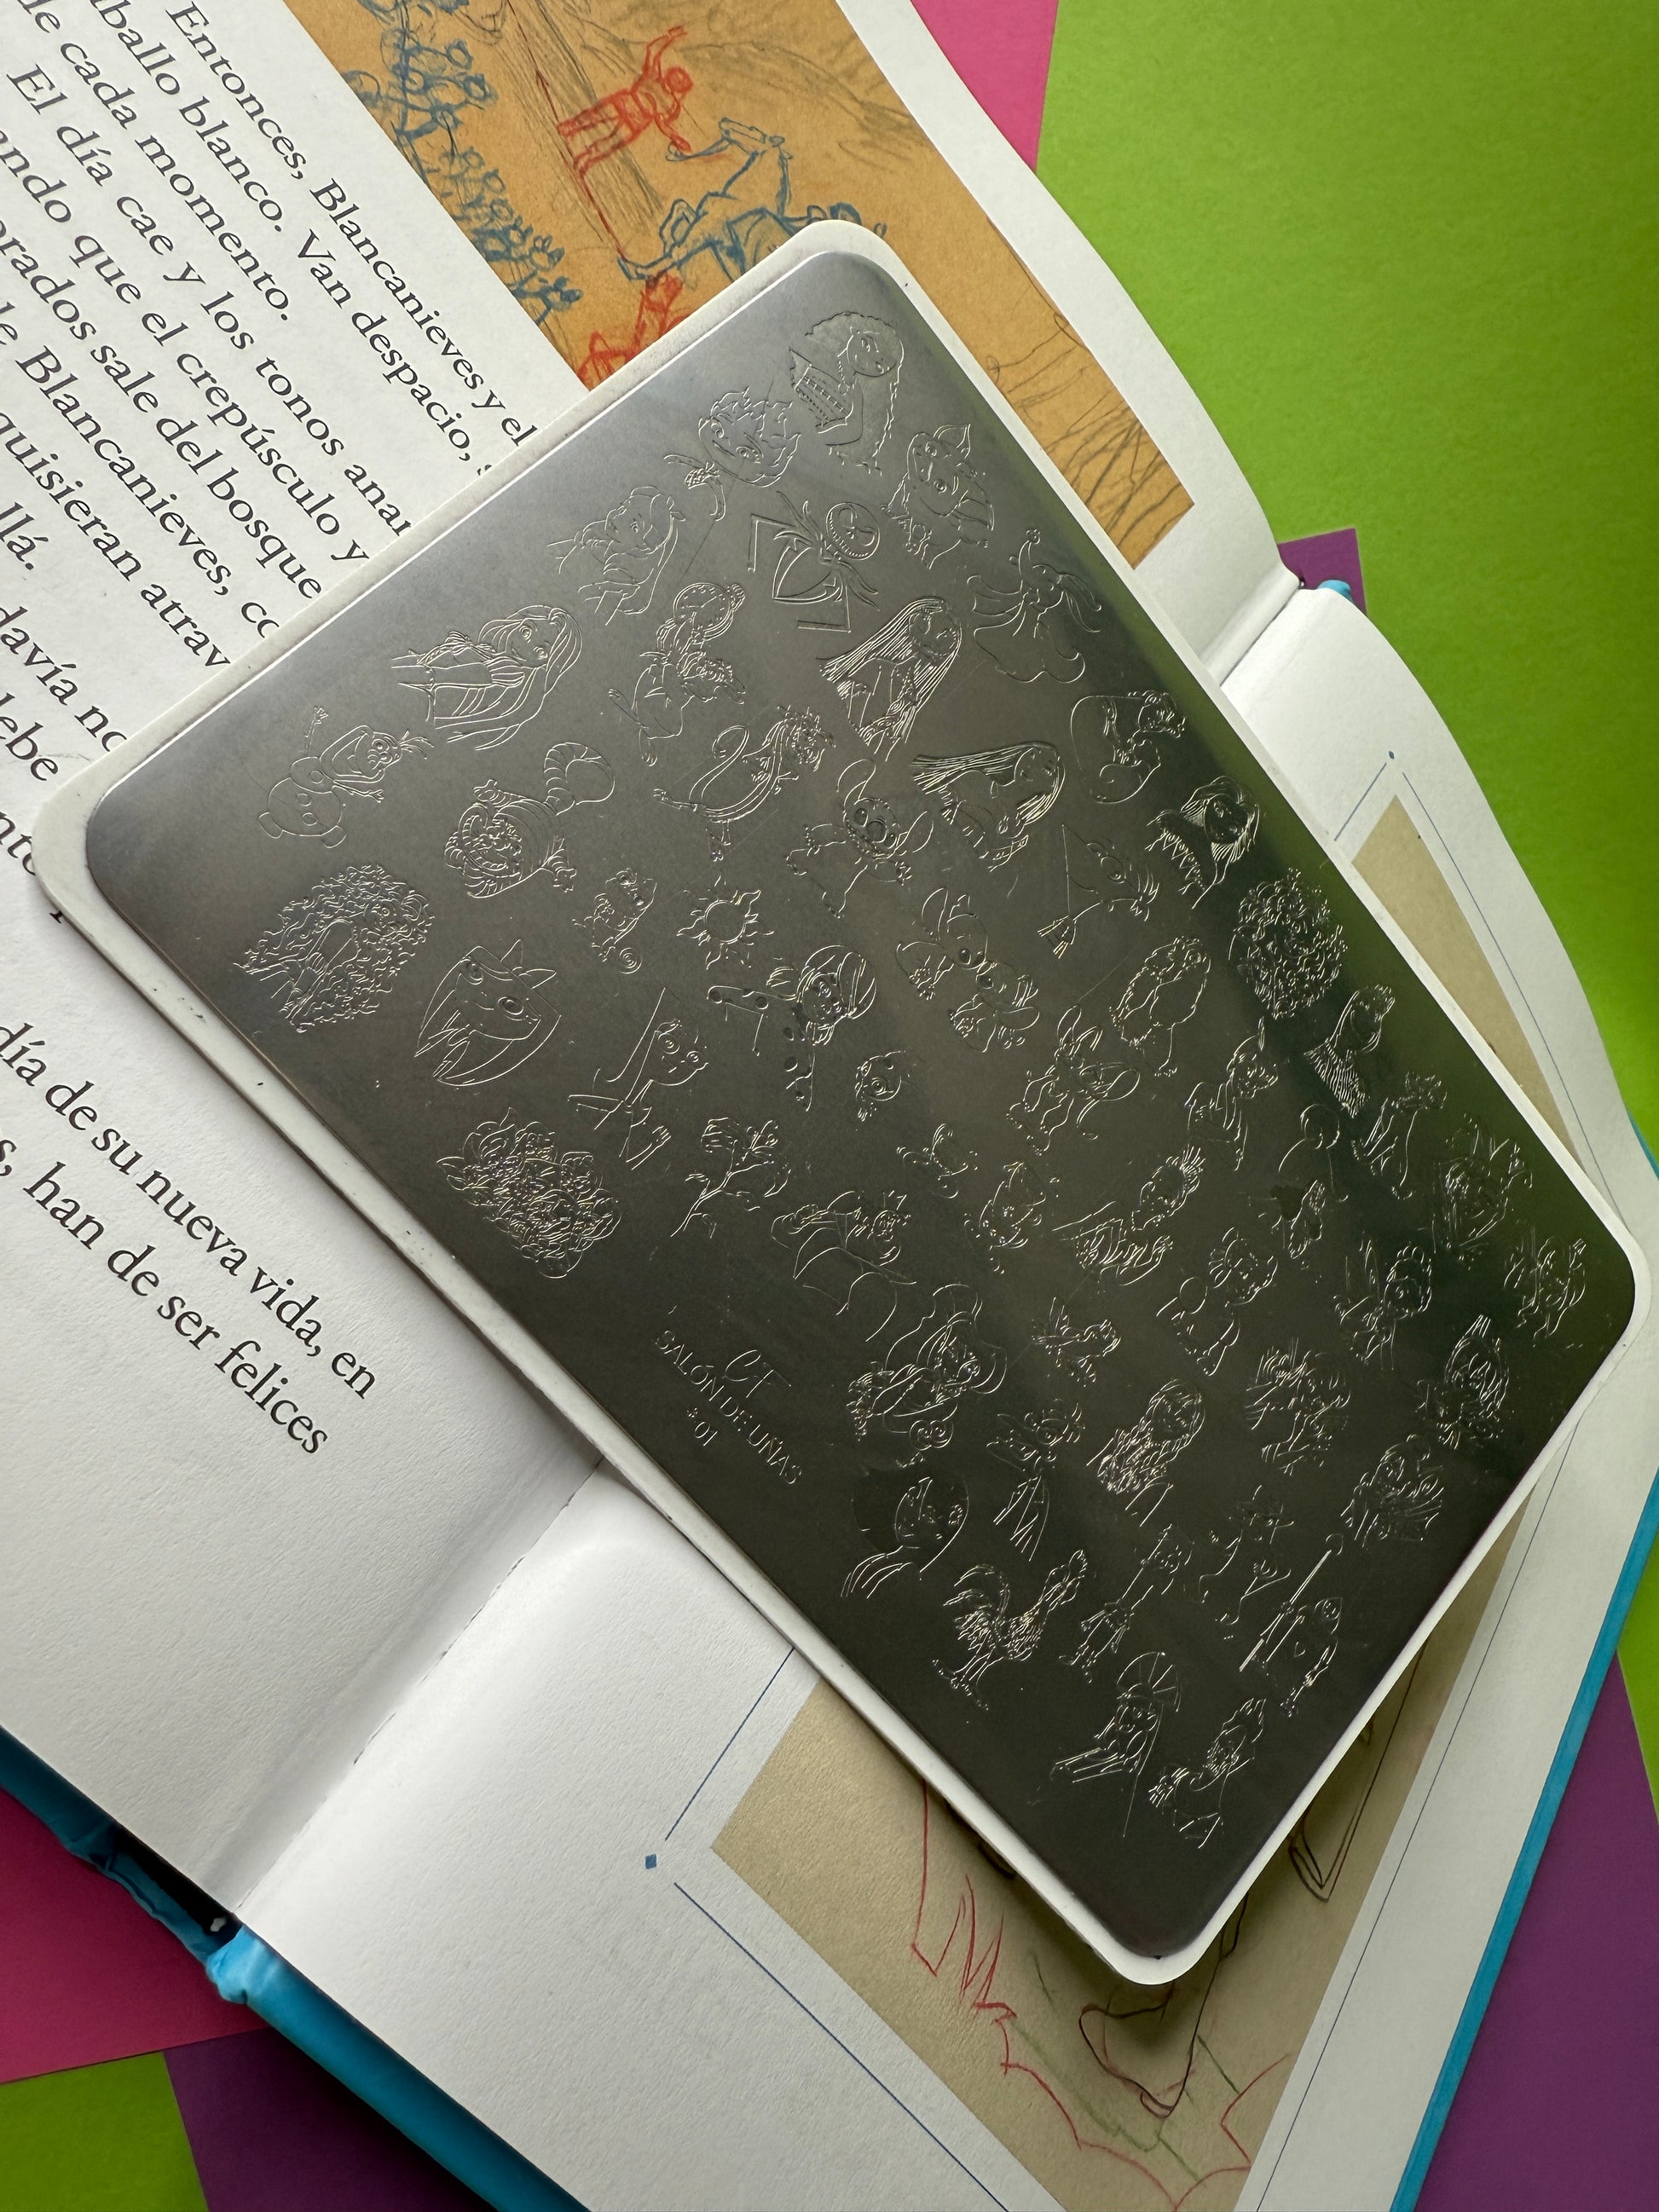 Entonces, Blancanieves y el
caballo blanco. Van despacio,
de cada momento.
El día cae y los tonos
que el crepúsculo y
sale del bosque
Blancanieves,
quisieran
allá.
todavía
debe
día de su nueva vida, en
han de ser felices
CT
SALÓN DE UÑAS
01